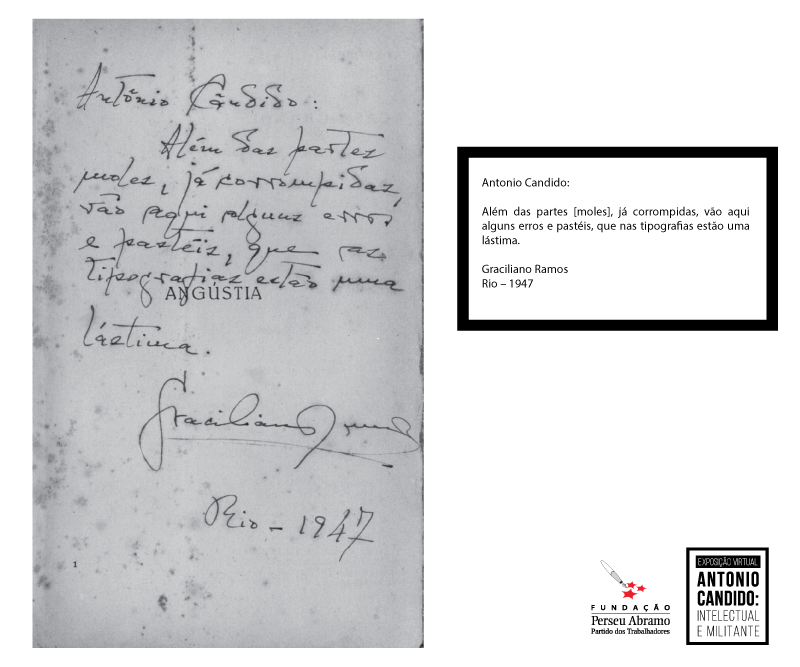 Antônio Cândido:
Além das partes
moles, já corrompidas,
vão aqui alguns erros
e pastéis, que nas
tipografias estão uma
ANGÚSTIA
lástima.
Graciliano Ramos
Rio – 1947
1
Antonio Candido:
Além das partes [moles], já corrompidas, vão aqui
alguns erros e pastéis, que nas tipografias estão uma
lástima.
Graciliano Ramos
Rio – 1947
FUNDAÇÃO
Perseu Abramo
Partido dos Trabalhadores
EXPOSIÇÃO VIRTUAL
ANTONIO
CANDIDO:
INTELECTUAL
E MILITANTE